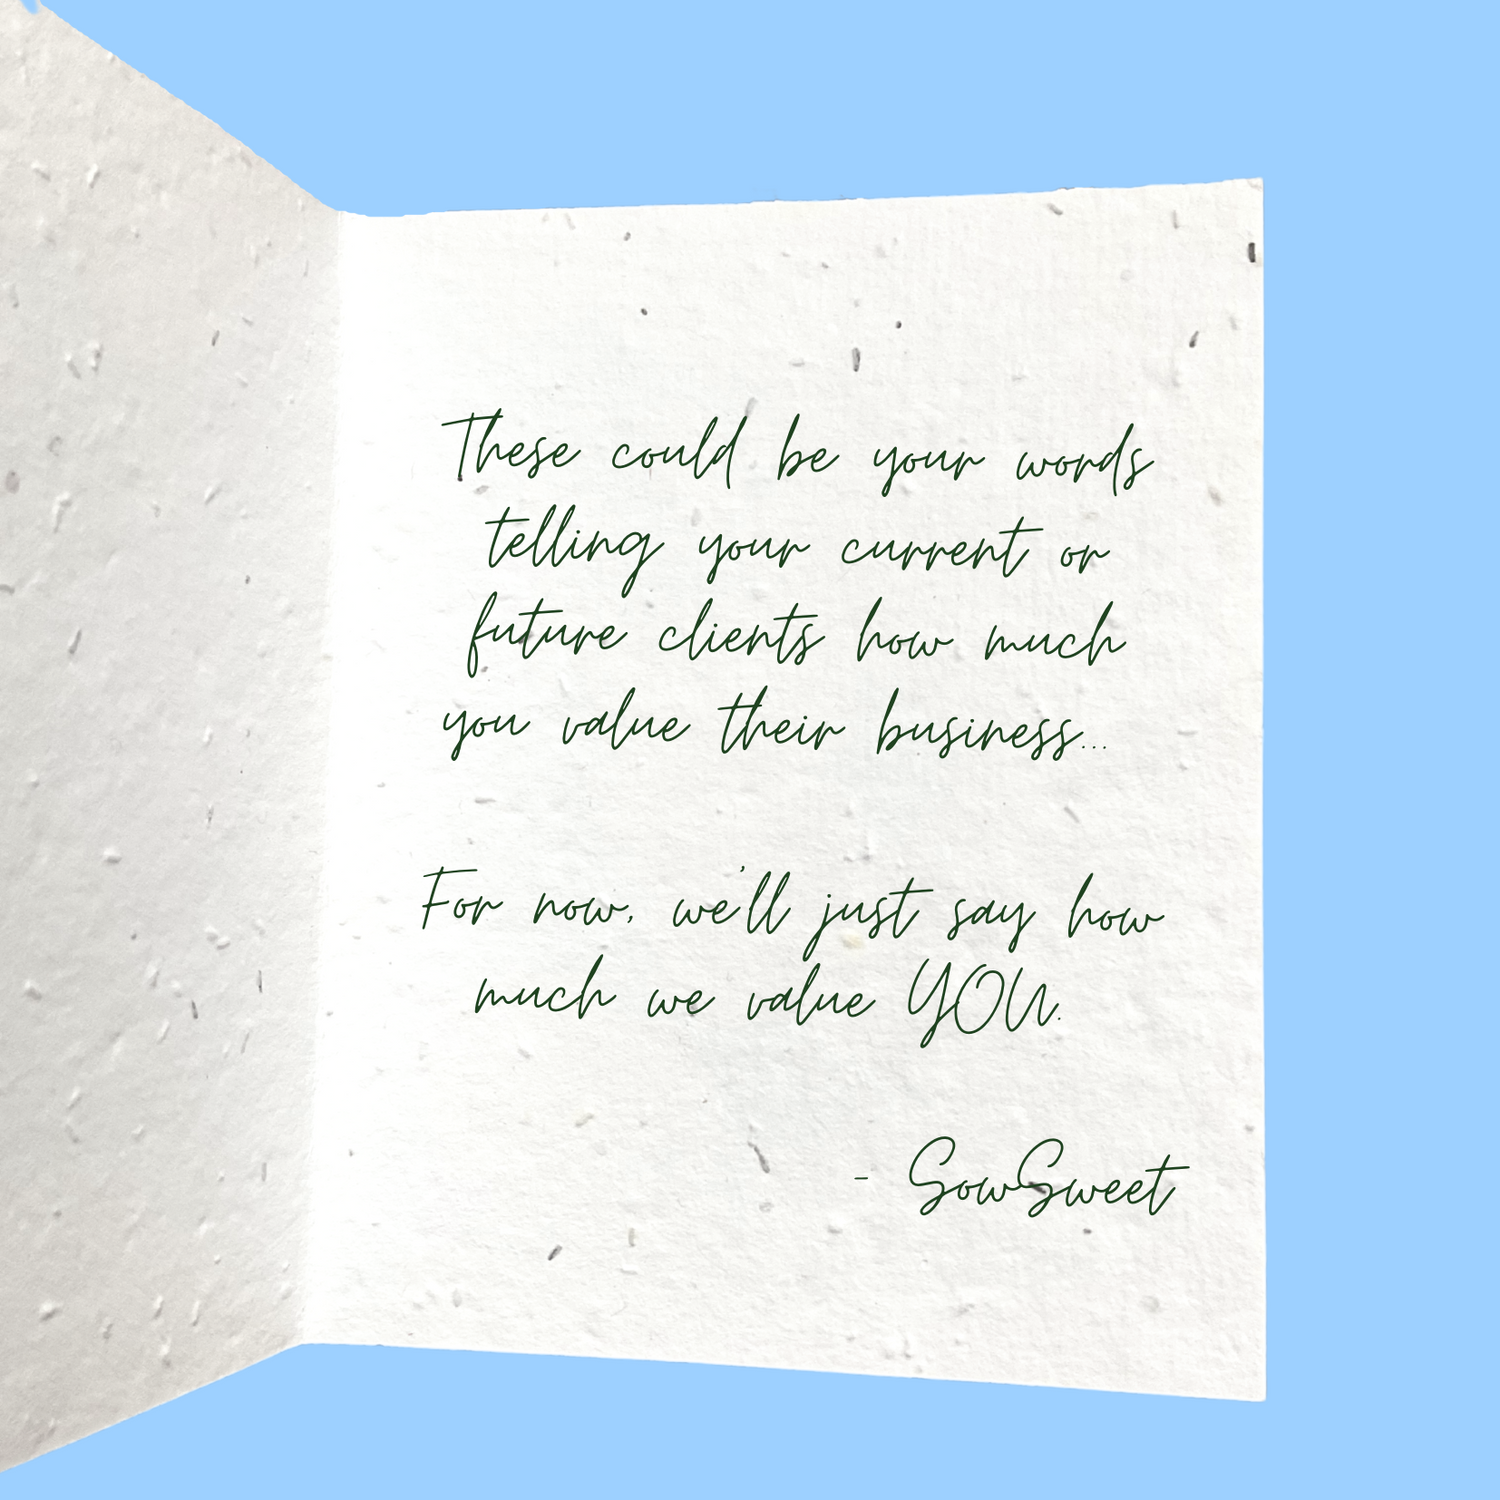 These could be your words
telling your current or
future clients how much
you value their business...
For now, we'll just say how
much we value YOU.
- SowSweet